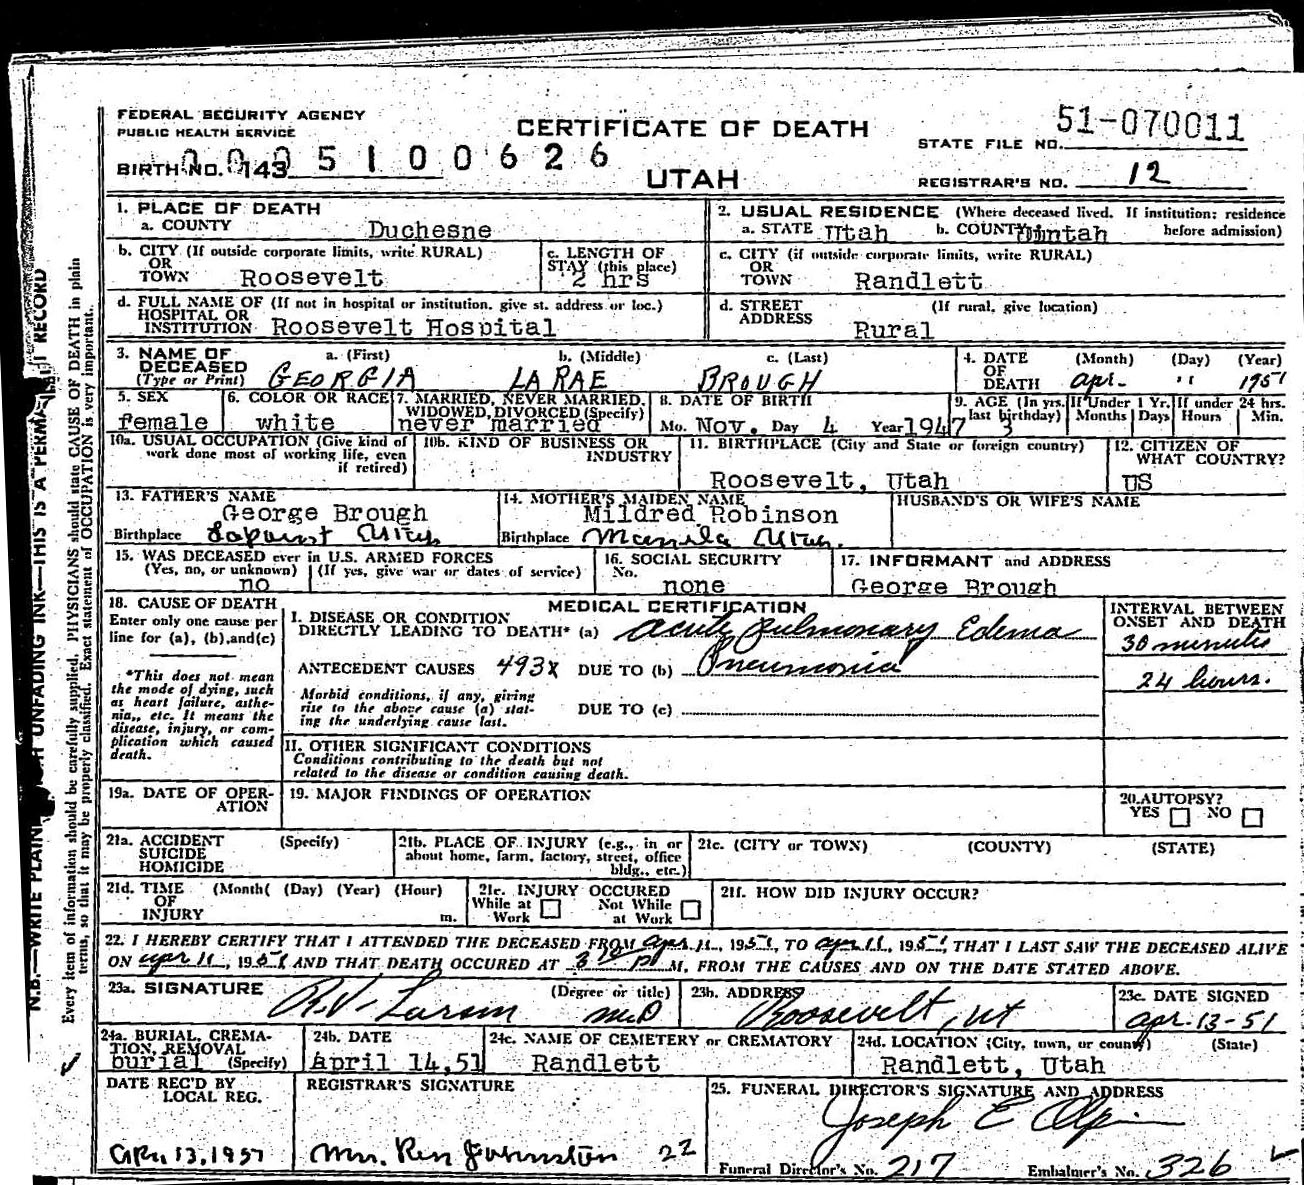 FEDERAL SECURITY AGENCY
PUBLIC HEALTH SERVICE
CERTIFICATE OF DEATH
STATE FILE NO. 51-070011
BIRTH NO. 143 0005100626
UTAH
REGISTRAR'S NO. 12
1. PLACE OF DEATH
a. COUNTY Duchesne
2. USUAL RESIDENCE (Where deceased lived. If institution: residence before admission)
a. STATE Utah b. COUNTY Uintah
b. CITY (If outside corporate limits, write RURAL)
OR
TOWN Roosevelt
c. LENGTH OF
STAY (this place)
2 hrs
c. CITY (if outside corporate limits, write RURAL)
OR
TOWN Randlett
d. FULL NAME OF (If not in hospital or institution, give st. address or loc.)
HOSPITAL OR
INSTITUTION Roosevelt Hospital
d. STREET (If rural, give location)
ADDRESS Rural
3. NAME OF a. (First) b. (Middle) c. (Last)
DECEASED
(Type or Print) GEORGIA LA RAE BROUGH
4. DATE (Month) (Day) (Year)
OF
DEATH apr. 11 1951
5. SEX
female
6. COLOR OR RACE
white
7. MARRIED, NEVER MARRIED,
WIDOWED, DIVORCED (Specify)
never married
8. DATE OF BIRTH
Mo. Nov. Day 4 Year 1947
9. AGE (In yrs. last birthday) 3
If Under 1 Yr. Months Days
If under 24 hrs. Hours Min.
10a. USUAL OCCUPATION (Give kind of
work done most of working life, even
if retired)
10b. KIND OF BUSINESS OR
INDUSTRY
11. BIRTHPLACE (City and State or foreign country)
Roosevelt, Utah
12. CITIZEN OF
WHAT COUNTRY?
US
13. FATHER'S NAME
George Brough
Birthplace Lapoint Utah
14. MOTHER'S MAIDEN NAME
Mildred Robinson
Birthplace Manila Utah.
HUSBAND'S OR WIFE'S NAME
15. WAS DECEASED ever in U.S. ARMED FORCES
(Yes, no, or unknown) (If yes, give war or dates of service)
no
16. SOCIAL SECURITY
No.
none
17. INFORMANT and ADDRESS
George Brough
18. CAUSE OF DEATH
Enter only one cause per
line for (a), (b), and (c)
*This does not mean
the mode of dying, such
as heart failure, asthe-
nia,, etc. It means the
disease, injury, or com-
plication which caused
death.
MEDICAL CERTIFICATION
I. DISEASE OR CONDITION
DIRECTLY LEADING TO DEATH* (a) Acute Pulmonary Edema
INTERVAL BETWEEN
ONSET AND DEATH
30 minutes
ANTECEDENT CAUSES 493X DUE TO (b) Pneumonia
24 hours.
Morbid conditions, if any, giving
rise to the above cause (a) stat-
ing the underlying cause last.
DUE TO (c)
II. OTHER SIGNIFICANT CONDITIONS
Conditions contributing to the death but not
related to the disease or condition causing death.
19a. DATE OF OPER-
ATION
19. MAJOR FINDINGS OF OPERATION
20. AUTOPSY?
YES NO
21a. ACCIDENT (Specify)
SUICIDE
HOMICIDE
21b. PLACE OF INJURY (e.g., in or
about home, farm, factory, street, office
bldg., etc.)
21c. (CITY or TOWN) (COUNTY) (STATE)
21d. TIME (Month( (Day) (Year) (Hour)
OF
INJURY m.
21e. INJURY OCCURED
While at Work Not While at Work
21f. HOW DID INJURY OCCUR?
22. I HEREBY CERTIFY THAT I ATTENDED THE DECEASED FROM apr 11, 1951, TO apr 11, 1951, THAT I LAST SAW THE DECEASED ALIVE
ON apr 11, 1951 AND THAT DEATH OCCURED AT 3 P M. FROM THE CAUSES AND ON THE DATE STATED ABOVE.
23a. SIGNATURE (Degree or title)
R.V. Larson M.D
23b. ADDRESS
Roosevelt, Ut
23c. DATE SIGNED
apr-13-51
24a. BURIAL, CREMA-
TION, REMOVAL
burial (Specify)
24b. DATE
April 14,51
24c. NAME OF CEMETERY or CREMATORY
Randlett
24d. LOCATION (City, town, or county) (State)
Randlett, Utah
DATE REC'D BY
LOCAL REG.
Apr. 13, 1951
REGISTRAR'S SIGNATURE
Mrs. Ren Johnston 22
25. FUNERAL DIRECTOR'S SIGNATURE AND ADDRESS
Joseph E Olpin
Funeral Director's No. 217 Embalmer's No. 326
N.B.—WRITE PLAIN UNFADING INK—THIS IS A PERMA RECORD
Every item of information should be carefully supplied. PHYSICIANS should state CAUSE OF DEATH in plain
terms, so that it may be properly classified. Exact statement of OCCUPATION is very important.